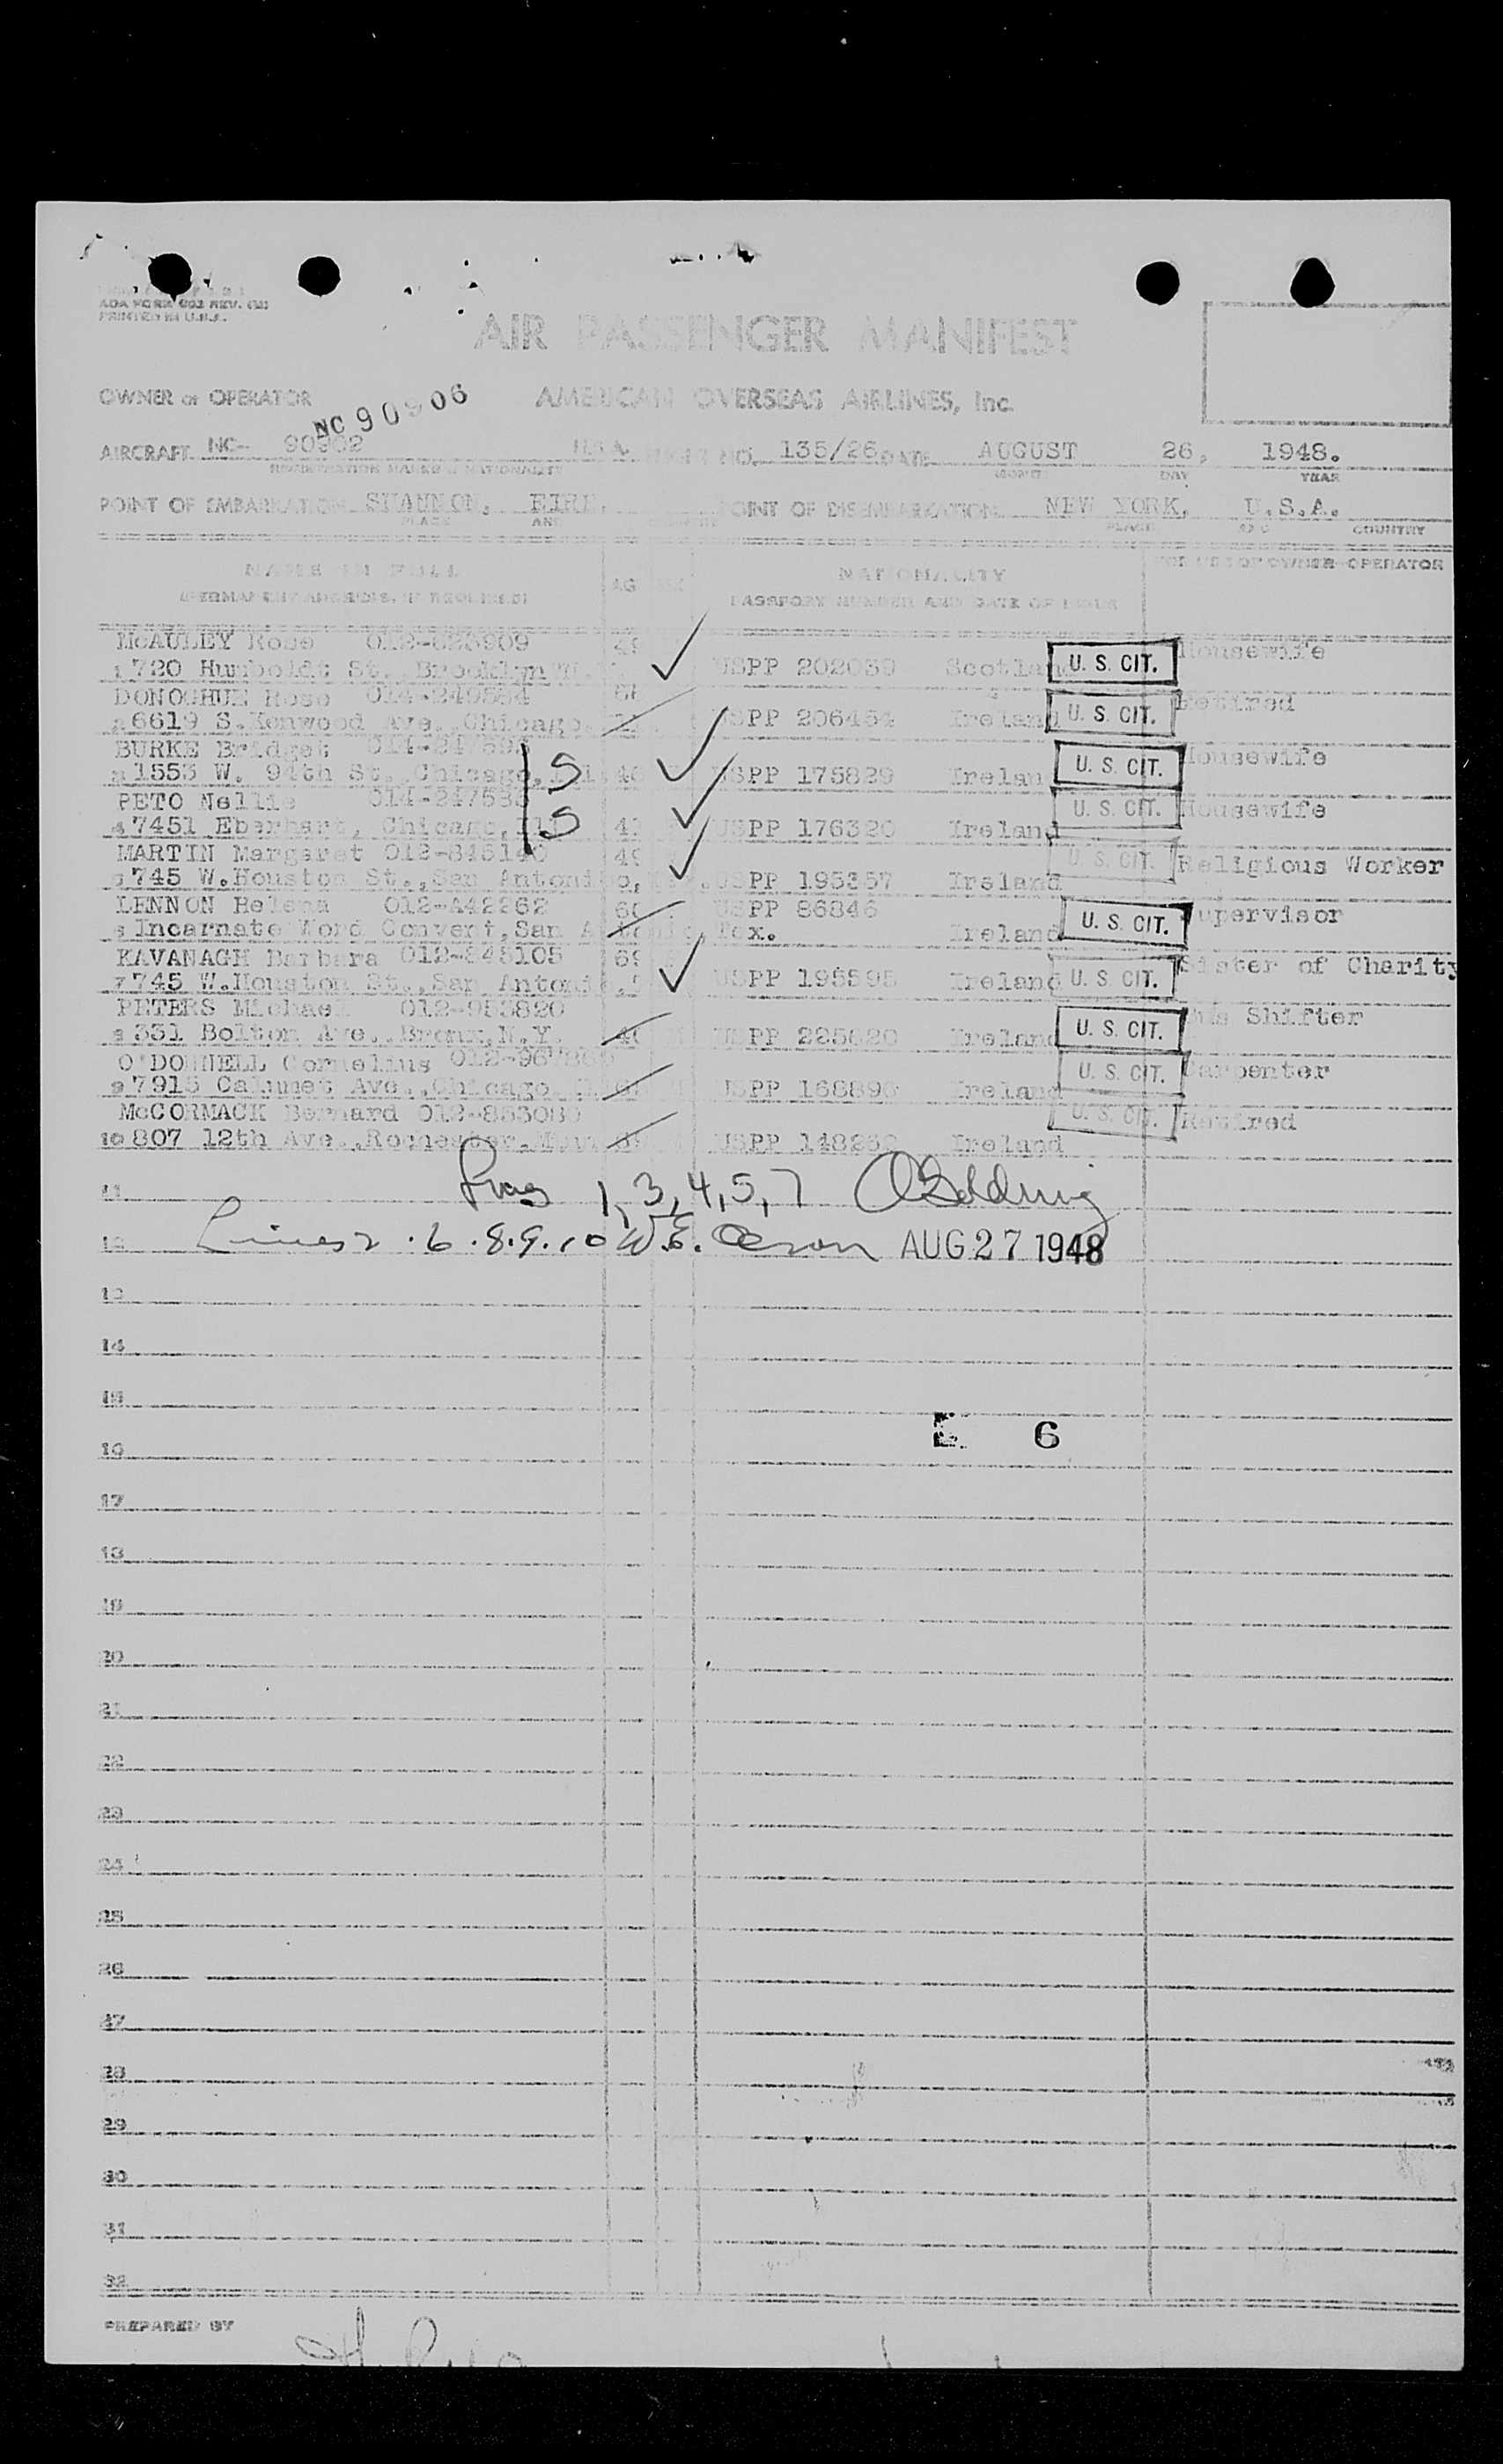 ADA FORM 002 REV.
PRINTED IN U.S.A.
AIR PASSENGER MANIFEST
OWNER or OPERATOR NC 90906 AMERICAN OVERSEAS AIRLINES, Inc.
AIRCRAFT NC- 90902 U.S.A. FLIGHT NO. 135/26 DATE AUGUST 26, 1948.
REGISTRATION MARKS & NATIONALITY MONTH DAY YEAR
POINT OF EMBARKATION SHANNON, EIRE, POINT OF DISEMBARKATION NEW YORK, U.S.A.
PLACE AND COUNTRY PLACE AND COUNTRY
NAME IN FULL AGE SEX NATIONALITY FOR USE OF OWNER-OPERATOR
(PERMANENT ADDRESS, IF REQUIRED) PASSPORT NUMBER AND DATE OF ISSUE
McAULEY Rose Housewife
1 720 Humboldt St. Brooklyn USPP 202039 Scotland U. S. CIT.
DONOGHUE Rose Retired
2 6619 S. Kenwood Ave., Chicago USPP 206454 Ireland U. S. CIT.
BURKE Bridget Housewife
3 1553 W. 94th St., Chicago, S USPP 175829 Ireland U. S. CIT.
PETO Nellie Housewife
4 7451 Eberhart, Chicago, S USPP 176320 Ireland U. S. CIT.
MARTIN Margaret 012-845140 Religious Worker
5 745 W.Houston St.,San Antonio, USPP 195357 Ireland U. S. CIT.
LENNON Helena 012-A42262 USPP 86846 Supervisor
6 Incarnate Word Convent,San Antonio, Tex. Ireland U. S. CIT.
KAVANAGH Barbara 012-845105 69 Sister of Charity
7 745 W.Houston St.,San Antonio USPP 195595 Ireland U. S. CIT.
PETERS Michael 012-953820 Shifter
8 331 Bolton Ave., Bronx, N.Y. USPP 225620 Ireland U. S. CIT.
O'DONNELL Cornelius Carpenter
9 7915 Calumet Ave., Chicago USPP 168890 Ireland U. S. CIT.
McCORMACK Bernard Retired
10 807 12th Ave.,Rochester, USPP Ireland U. S. CIT.
11 1, 3, 4, 5, 7
12 Lines 2 . 6 . 8 . 9 . 10 W.E. AUG 27 1948
13
14
15
16 6
17
18
19
20
21
22
23
24
25
26
27
28
29
30
31
32
PREPARED BY